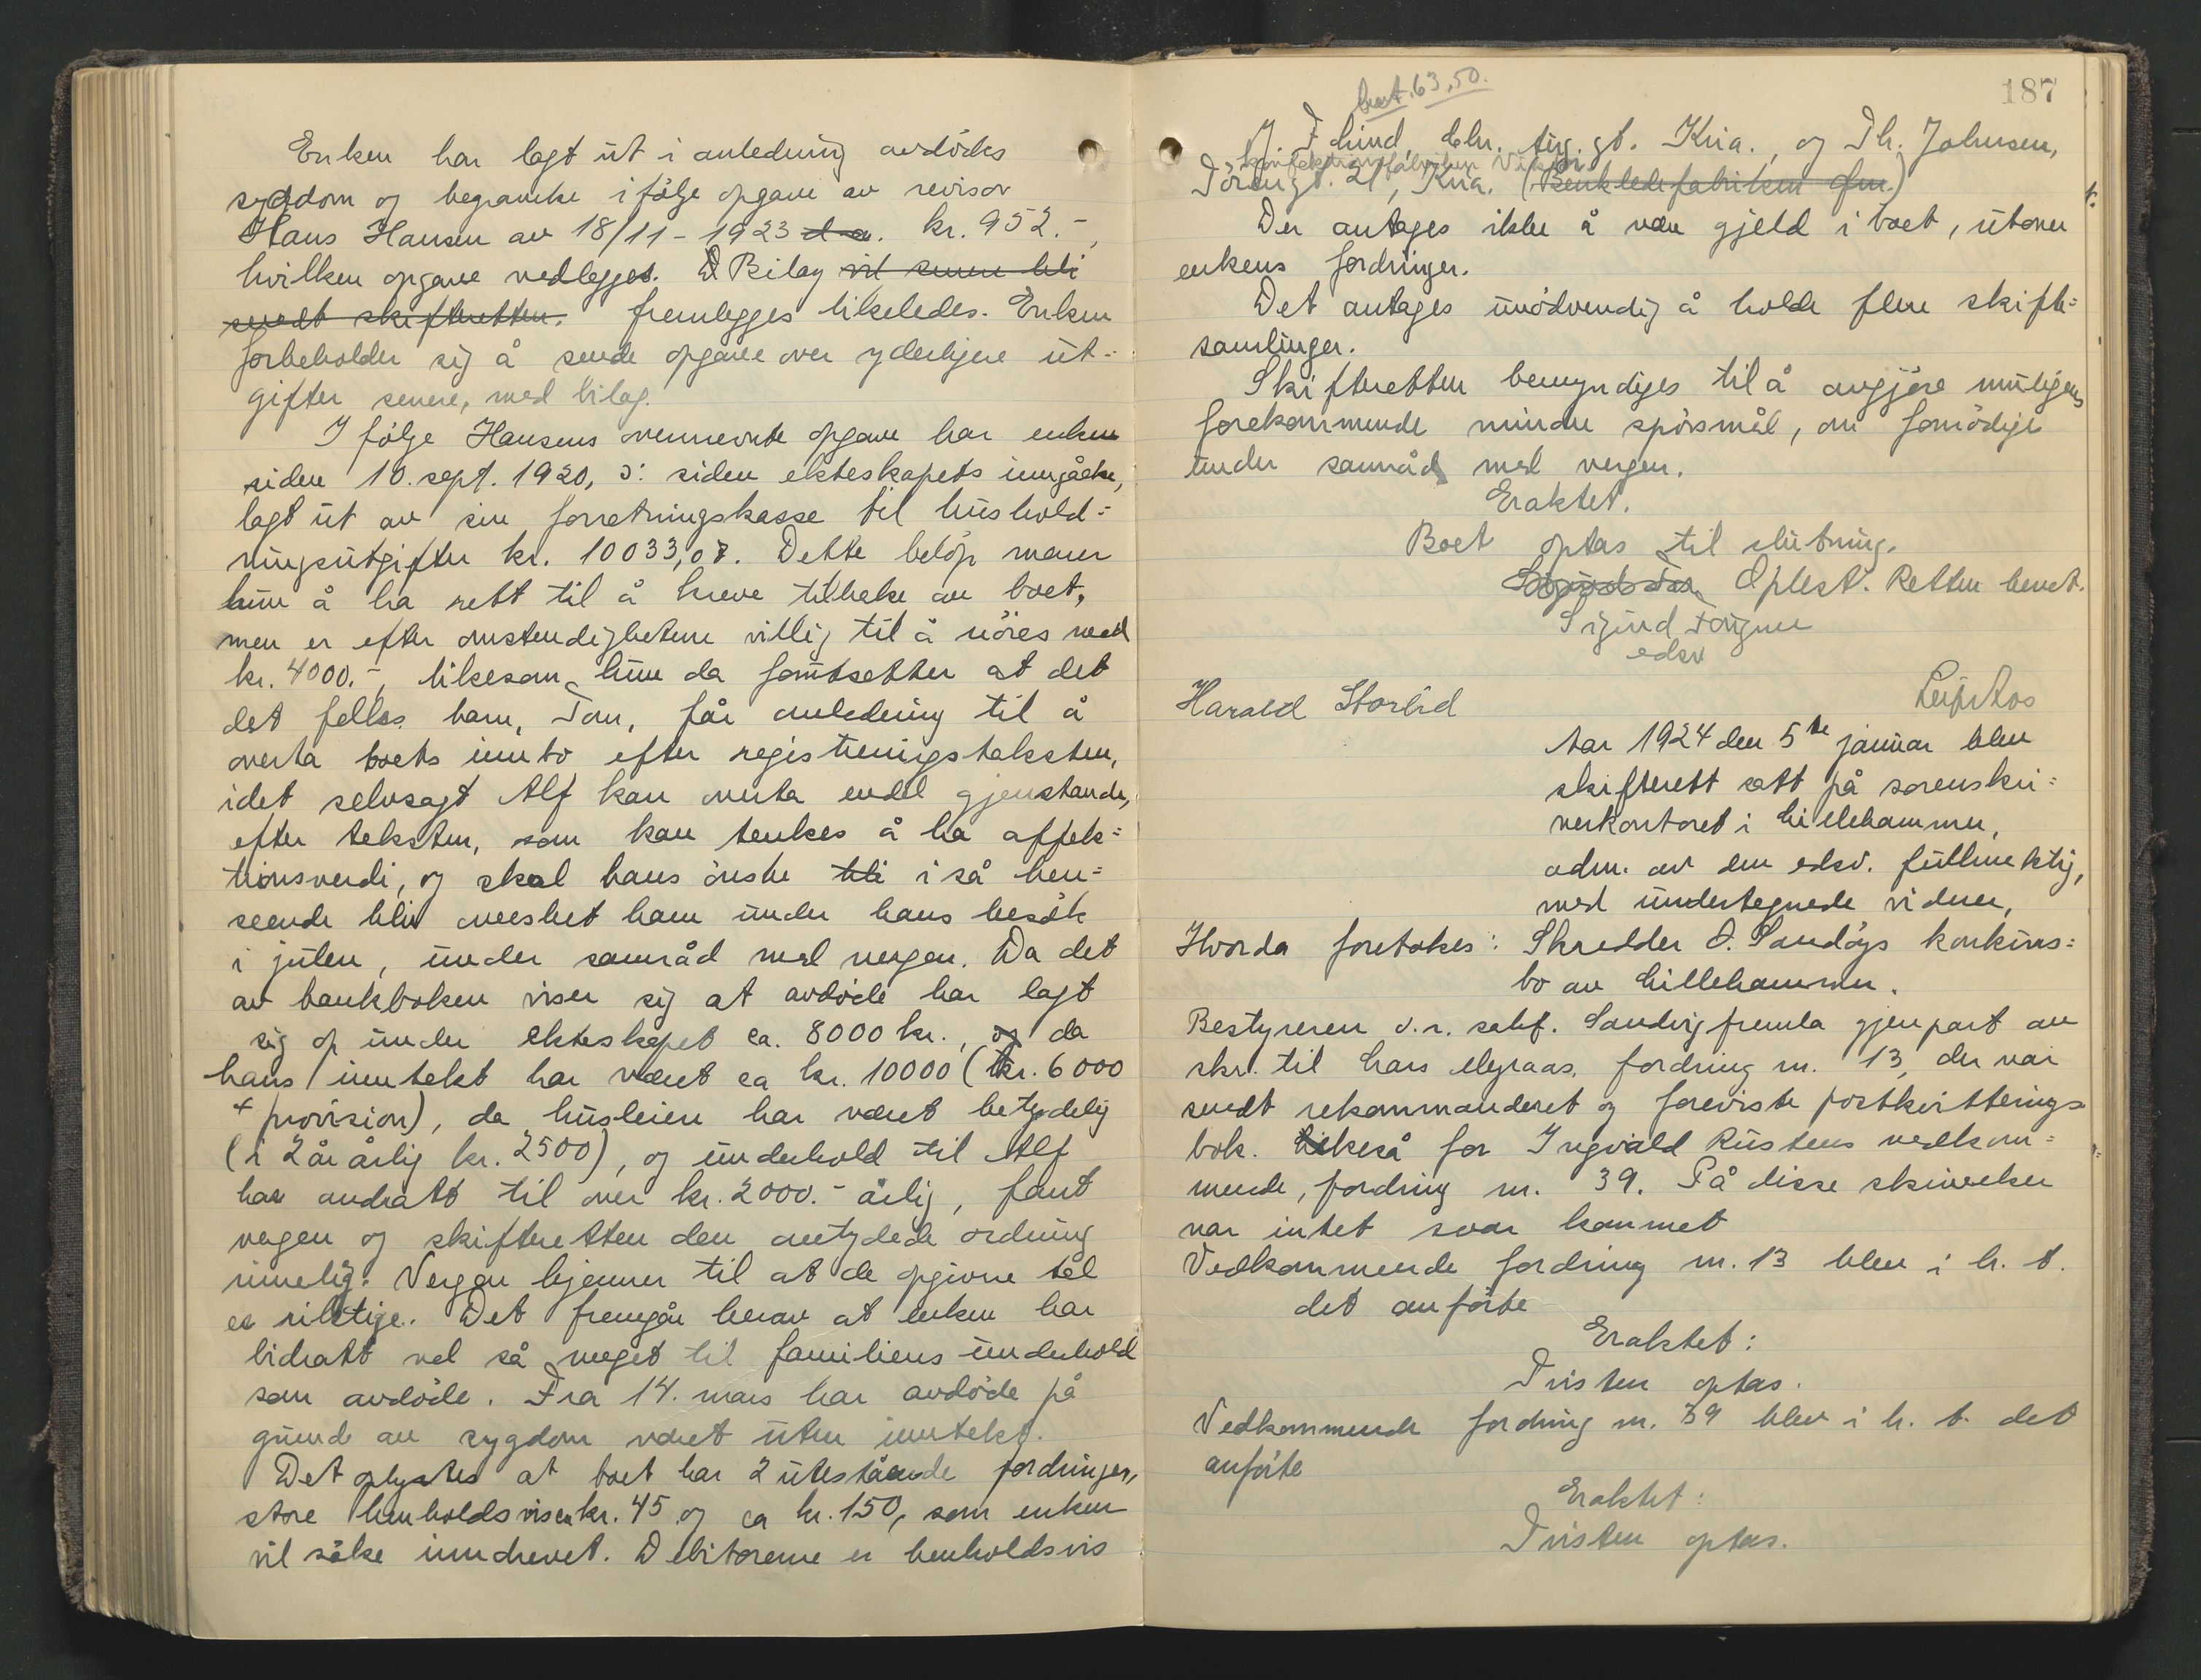 Enken har lagt ut i anledning avdödes
sygdom og begravelse ifölge opgave av revisor
Hans Hansen av 18/11-1923 kr. 952.-,
hvilken opgave vedlegges. Bilag vil senere bli
sendt skifteretten. fremlegges likeledes. Enken
forbeholder sig å sende opgave over yderligere ut-
gifter senere, med bilag.
I fölge Hansens ovennevnte opgave har enken
siden 10. sept. 1920, ɔ: siden ekteskapets inngåelse,
lagt ut av sin forretningskasse til hushold=
ningsutgifter kr. 10033,07. Dette belöp mener
hun å ha rett til å kreve tilbake av boet,
men er efter omstendighetene villig til å nöies med
kr. 4000.-, likesom hun da forutsetter at det
det felles barn, Tom, får anledning til å
overta boets innbo efter registreringstaksten,
idet selvsagt Alf kan overta endel gjenstande,
efter taksten, som kan tenkes å ha affek=
tionsverdi, og skal hans önske bli i så hen=
seende bli overlatt ham under hans besök
i julen, under samråd med vergen. Da det
av bankboken viser sig at avdöde har lagt
sig op under ekteskapet ca. 8000 kr., og da
hans inntekt har været ca kr. 10000 (kr. 6000
+ provision), da husleien har været betydelig
(i 2 år årlig kr. 2500), og underhold til Alf
har andratt til over kr. 2000.- årlig, fant
vergen og skifteretten den antydede ordning
rimelig. Vergen kjenner til at de opgivne tal
er riktige. Det fremgår herav at enken har
bidratt vel så meget til familiens underhold
som avdöde. Fra 14. mars har avdöde på
grund av sygdom været uten inntekt.
Det oplystes at boet har 2 utestående fordringer,
store henholdsvis ca kr. 45 og ca kr. 150, som enken
vil söke inndrevet. Debitorene er henholdsvis
187
kost. 63,50.
J. F. Lund, Chr. Aug. gt. Kria., og Th. Johnsen,
konfektionsfabriken Viktor
gt. 21, Kria. (Benklædefabriken)
Der antages ikke å være gjeld i boet, utover
enkens fordringer.
Det antages unödvendig å holde flere skifte=
samlinger.
Skifteretten bemyndiges til å avgjöre muligens
forekommende mindre spörsmål, om fornödigt
under samråd med vergen.
Eraktet.
Boet optas til slutning.
Oplest. Retten hevet.
Sigurd
edsv
Harald Storlid
Leif Aos
Aar 1924 den 5te januar blev
skifterett satt på sorenskri=
verkontoret i Lillehammer,
adm. av den edsv. fullmektig,
med undertegnede vidner,
Hvorda foretokes: Skredder O. Sandvigs konkurs=
bo av Lillehammer.
Bestyreren o.r. sakf. Sandvig fremla gjenpart av
skr. til Lars Myraas, fordring nr. 13, der var
sendt rekommanderet og foreviste postkvitterings
bok. Likeså for Ingvald Rustens vedkom=
mende, fordring nr. 39. På disse skrivelser
var intet svar kommet
Vedkommende fordring nr. 13 blev i h. t.
det anförte
Eraktet:
Tvisten optas.
Vedkommende fordring nr. 39 blev i h. t. det
anförte
Eraktet:
Tvisten optas.